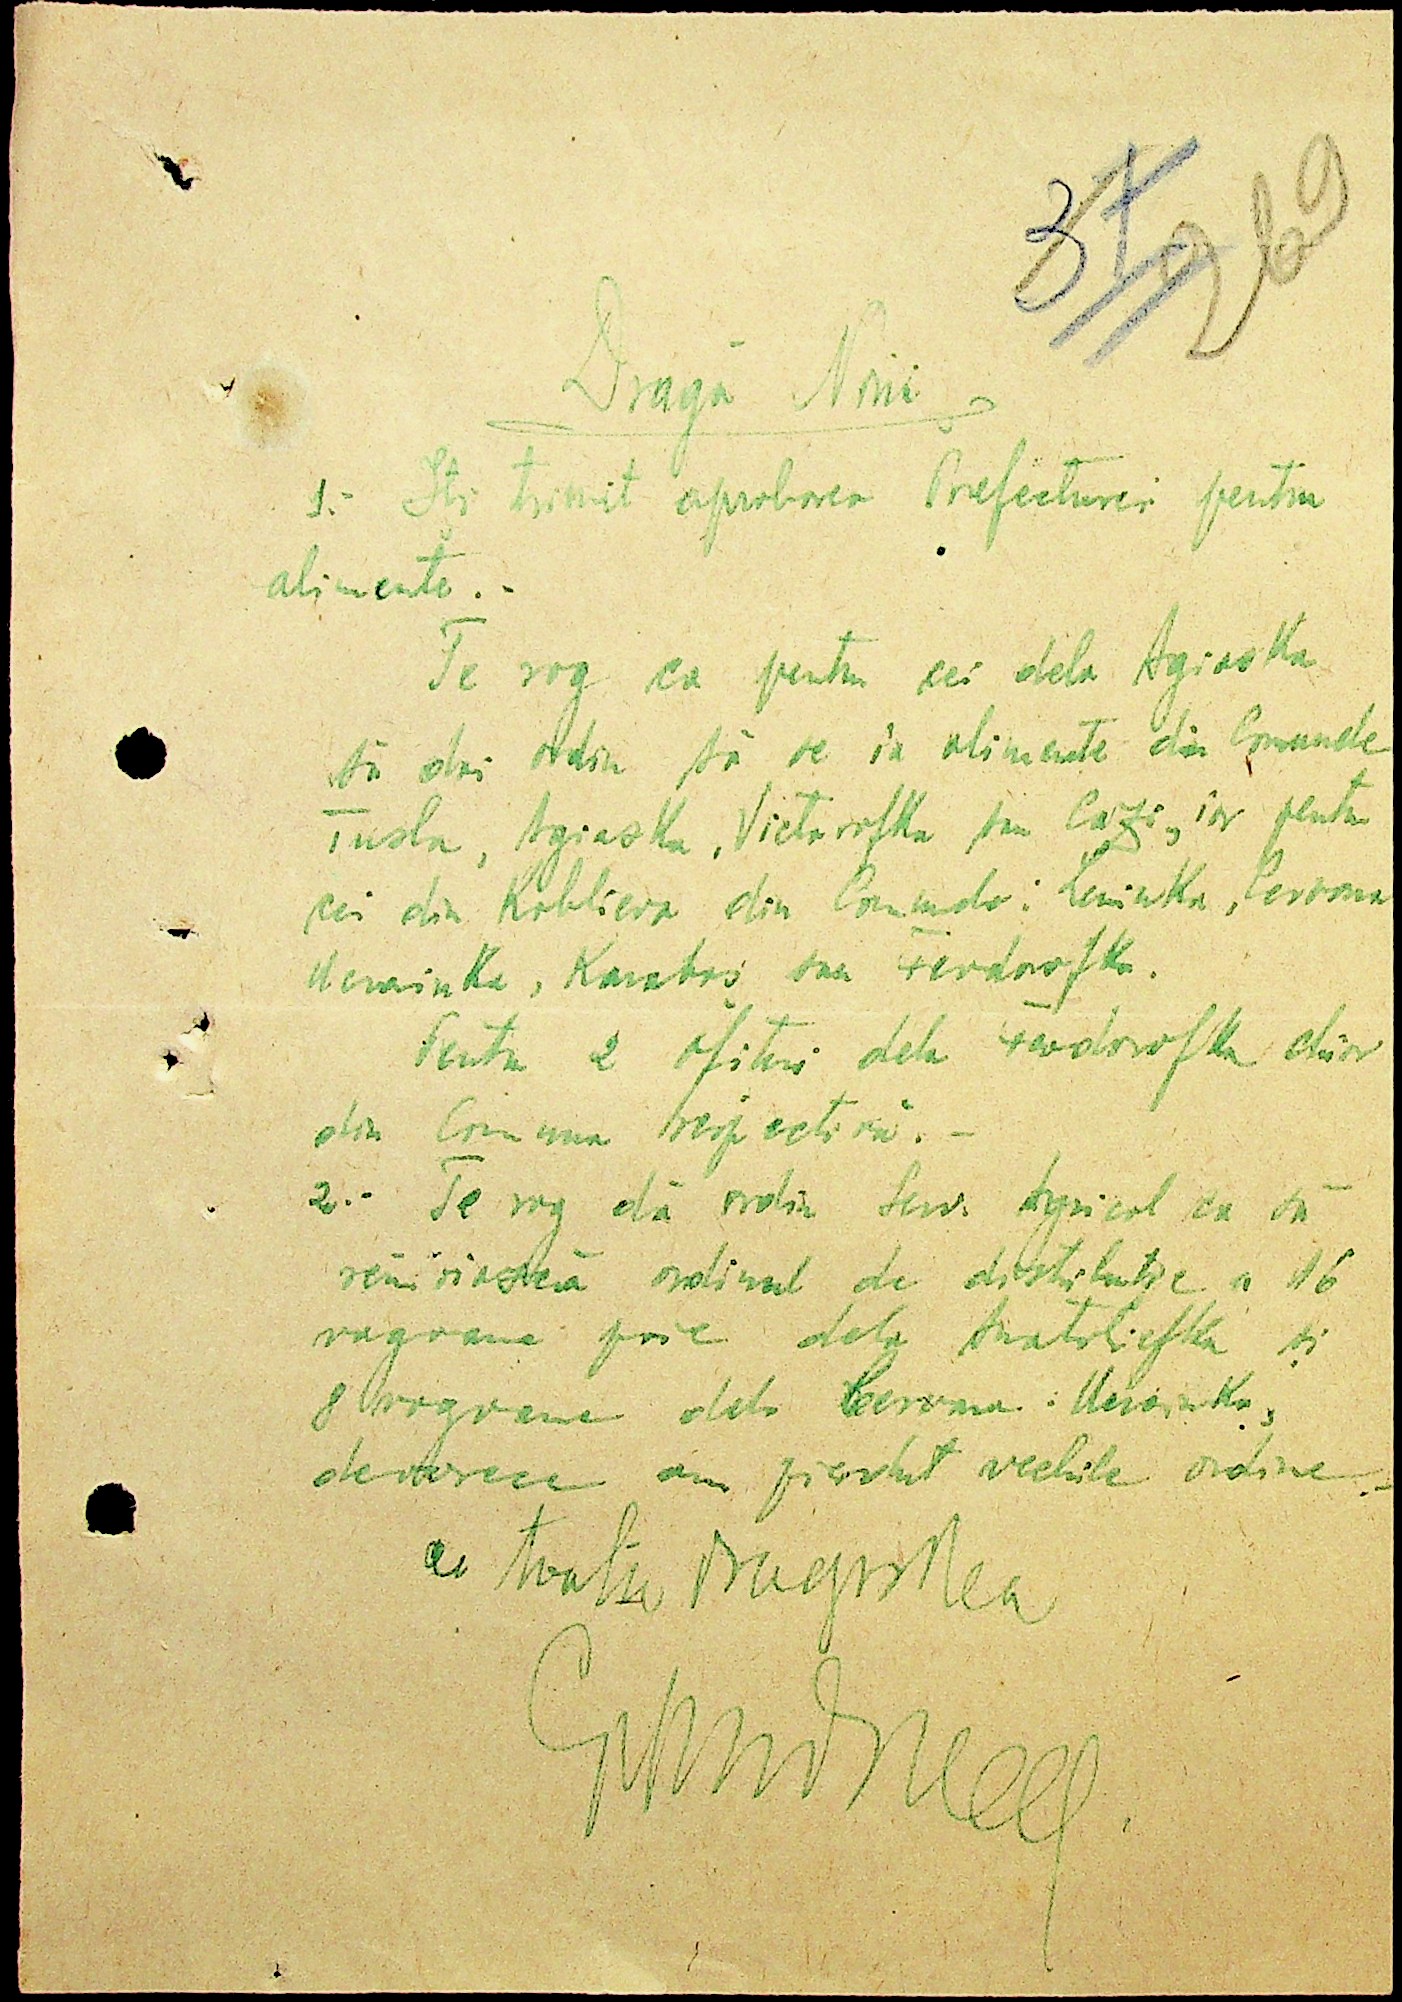 269
Dragă Nini
1.- Iți trimit aprobarea Prefecturei pentru
alimente.-
Te rog ca pentru cei dela Agiaska
să dai ordin să se ia alimente din Comunele
Tusla, Agiaska, Victorofka sau Cazi, iar pentru
cei din Kobliera din Comunele: Leninka, Cervona
Ucrainka, Karabaș sau Feodorofka.
Pentru 2 ofițeri dela Feodorofka chiar
din Comuna respectivă.-
2.- Te rog dă ordin Serv. Agricol ca să
ordinul de distribuție a 16
vagoane paie dela Anatoliefka și
8 vagoane dela Cervona-Ucrainka,
deoarece am pierdut vechile ordine.-
cu multă dragostea